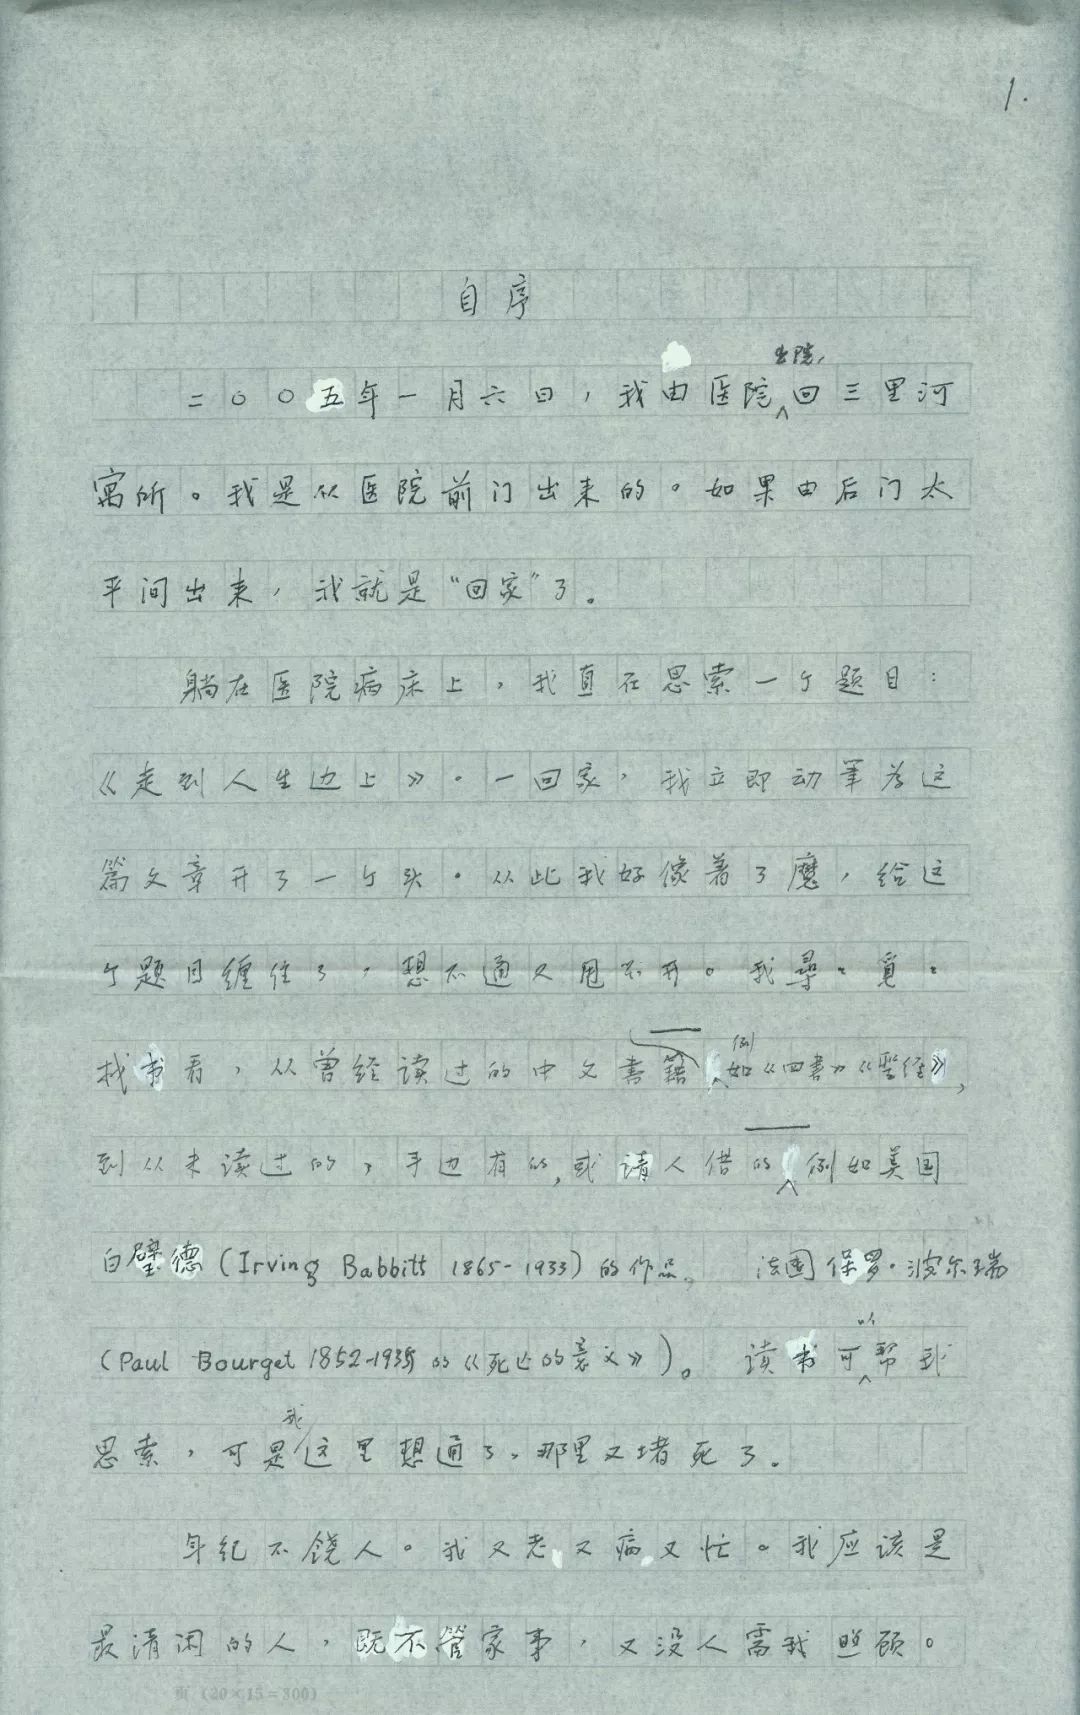 1.
自序
二〇〇五年一月六日，我由医院出院，回三里河
寓所。我是从医院前门出来的。如果由后门太
平间出来，我就是“回家”了。
躺在医院病床上，我直在思索一个题目：
《走到人生边上》。一回家，我立即动笔为这
篇文章开了一个头。从此我好像着了魔，给这
个题目缠住了，想不通又甩不开。我寻寻觅觅
找书看，从曾经读过的中文书籍例如《四书》《圣经》，
到从未读过的，手边有的，或请人借的例如美国
白璧德（Irving Babbitt 1865-1933）的作品，法国保罗·波尔瑞
（Paul Bourget 1852-1935 的《死亡的意义》）。读书可以帮我
思索，可是我这里想通了，那里又堵死了。
年纪不饶人。我又老又病又忙。我应该是
最清闲的人，既不管家事，又没人需我照顾。
页（20×15=300）